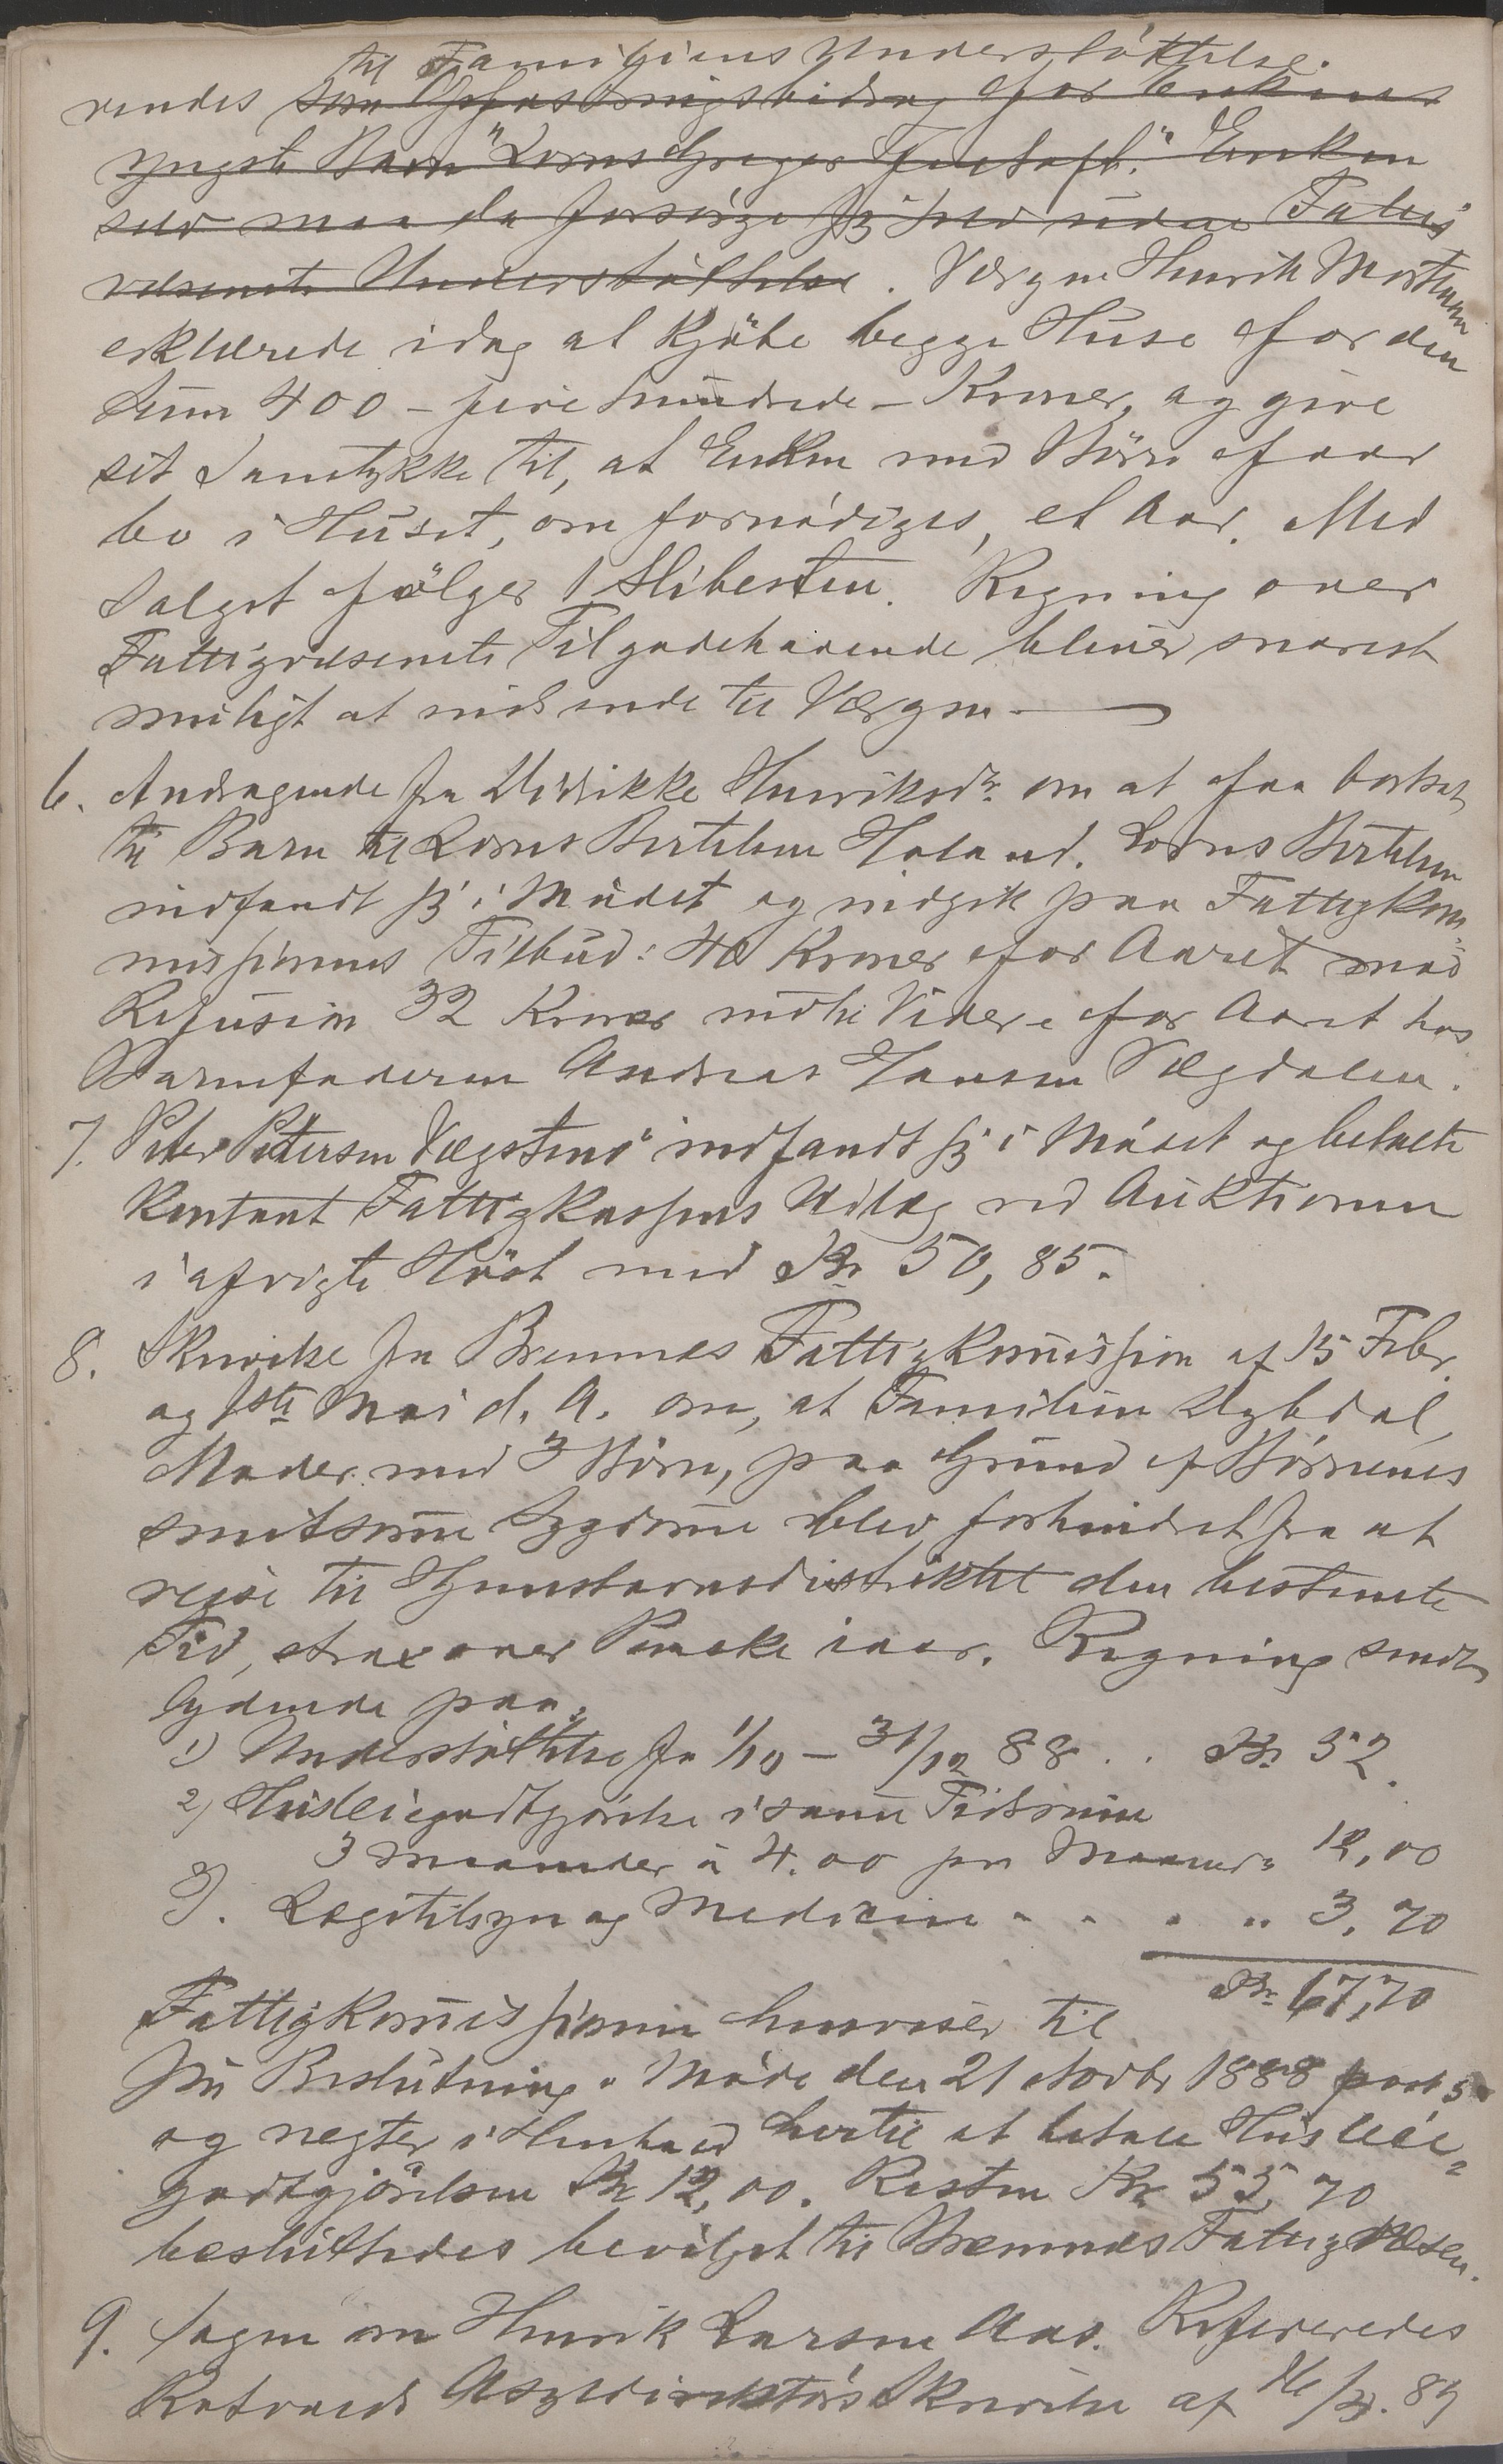 til Familiens Understöttelse.
vendes som Opfostringsbidrag for Enkens
yngste Barn "Lornts Greger Gustaf." Enken
selv maa da forsörge sig selv uden Fattig
væsenets Understöttelse. Værgen Henrik Mortensen
erklærede idag at kjöbe begge Huse for den
Sum 400 – fire hundrede – Kroner, og give
sit Samtykke til, at Enken med Börn faar
bo i Huset, om fornödiges, et Aar. Med
Salget fölger 1 Slibesten. Regning over
Fattigvæsenets Tilgodehavende bliver snarest
muligt at indsende til Værgen. —
6. Andragende fra Didrikke Henriksdr. om at faa bortsat
sit Barn til Lornts Bertelsen Holand. Lornts Bertelsen
indfandt sig i Mödet og indgik paa Fattigkom-
missionens Tilbud: 40 Kroner for Aaret mod
Refusion 32 Kroner indtil Videre for Aaret hos
Barnefaderen Andreas Hansen Vægdalen.
7. Peter Petersen Vægstend indfandt sig i Mödet og betalte
kontant Fattigkassens Udlæg ved Auktionen
i afvigte Höst med Kr 50,85.
8. Skrivelse fra Bremnes Fattigkommission af 15 Febr.
og 1ste Mai d. A. om, at Familien Nybdal,
Moder med 3 Börn, paa Grund af Börnenes
smitsomme Sygdomme blev forhindret fra at
reise til Hjemstavnsdistriktet den bestemte
Tid, strax over Paaske iaar. Regning sendt
lydende paa:
1) Understöttelse fra 1/10 – 31/12 88 . . Kr 52.
2) Husleiegodtgjörelse i samme Tidsrum
3 Maaneder à 4.00 pr Maaned " 12,00
3). Lægetilsyn og Medicin " " " " 3,70
Kr. 67,70
Fattigkommissionen henviser til
sin Beslutning i Möde den 21 Novbr 1888 post 5
og negter i Henhold hertil at betale Husleie-
godtgjörelsen Kr 12,00. Resten Kr 55,70
besluttedes bevilget til Bremnes Fattigvæsen.
9. Sagen om Henrik Larsen Aas. Refereredes
Rotvolds Asyldirektörs Skrivelse af 16/4. 89